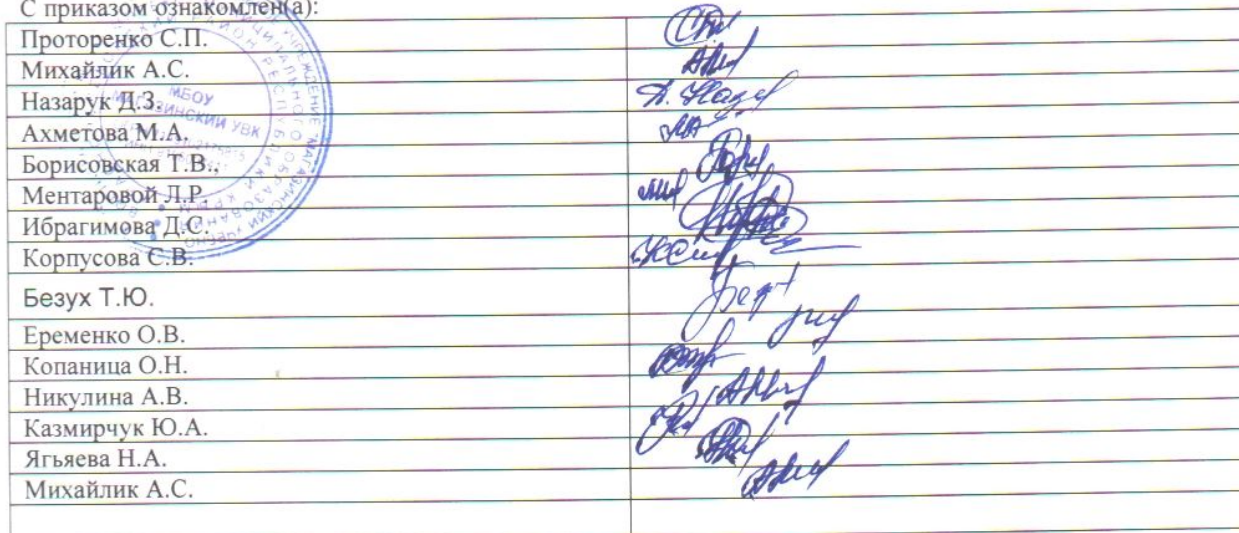 С приказом ознакомлен(а):
Проторенко С.П.
Михайлик А.С.
Назарук Д.З.
Ахметова М.А.
Борисовская Т.В.,
Ментаровой Л.Р.
Ибрагимова Д.С.
Корпусова С.В.
Безух Т.Ю.
Еременко О.В.
Копаница О.Н.
Никулина А.В.
Казмирчук Ю.А.
Ягьяева Н.А.
Михайлик А.С.
МБОУ
МАГАЗИНСКИЙ УВК